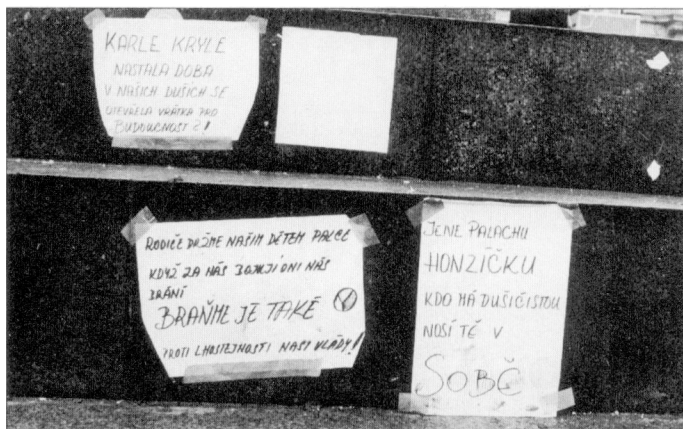 KARLE KRYLE
NASTALA DOBA
V NAŠICH DUŠÍCH SE
OTEVŘELA VRÁTKA PRO
BUDOUCNOST !
RODIČE DRŽME NAŠIM DĚTEM PALCE
KDYŽ ZA NÁS BOJUJÍ ONI NÁS
BRÁNÍ
BRAŇME JE TAKÉ
PROTI LHOSTEJNOSTI NAŠÍ VLÁDY!
JENE PALACHU
HONZÍČKU
KDO MÁ DUŠI ČISTOU
NOSÍ TĚ V
SOBĚ